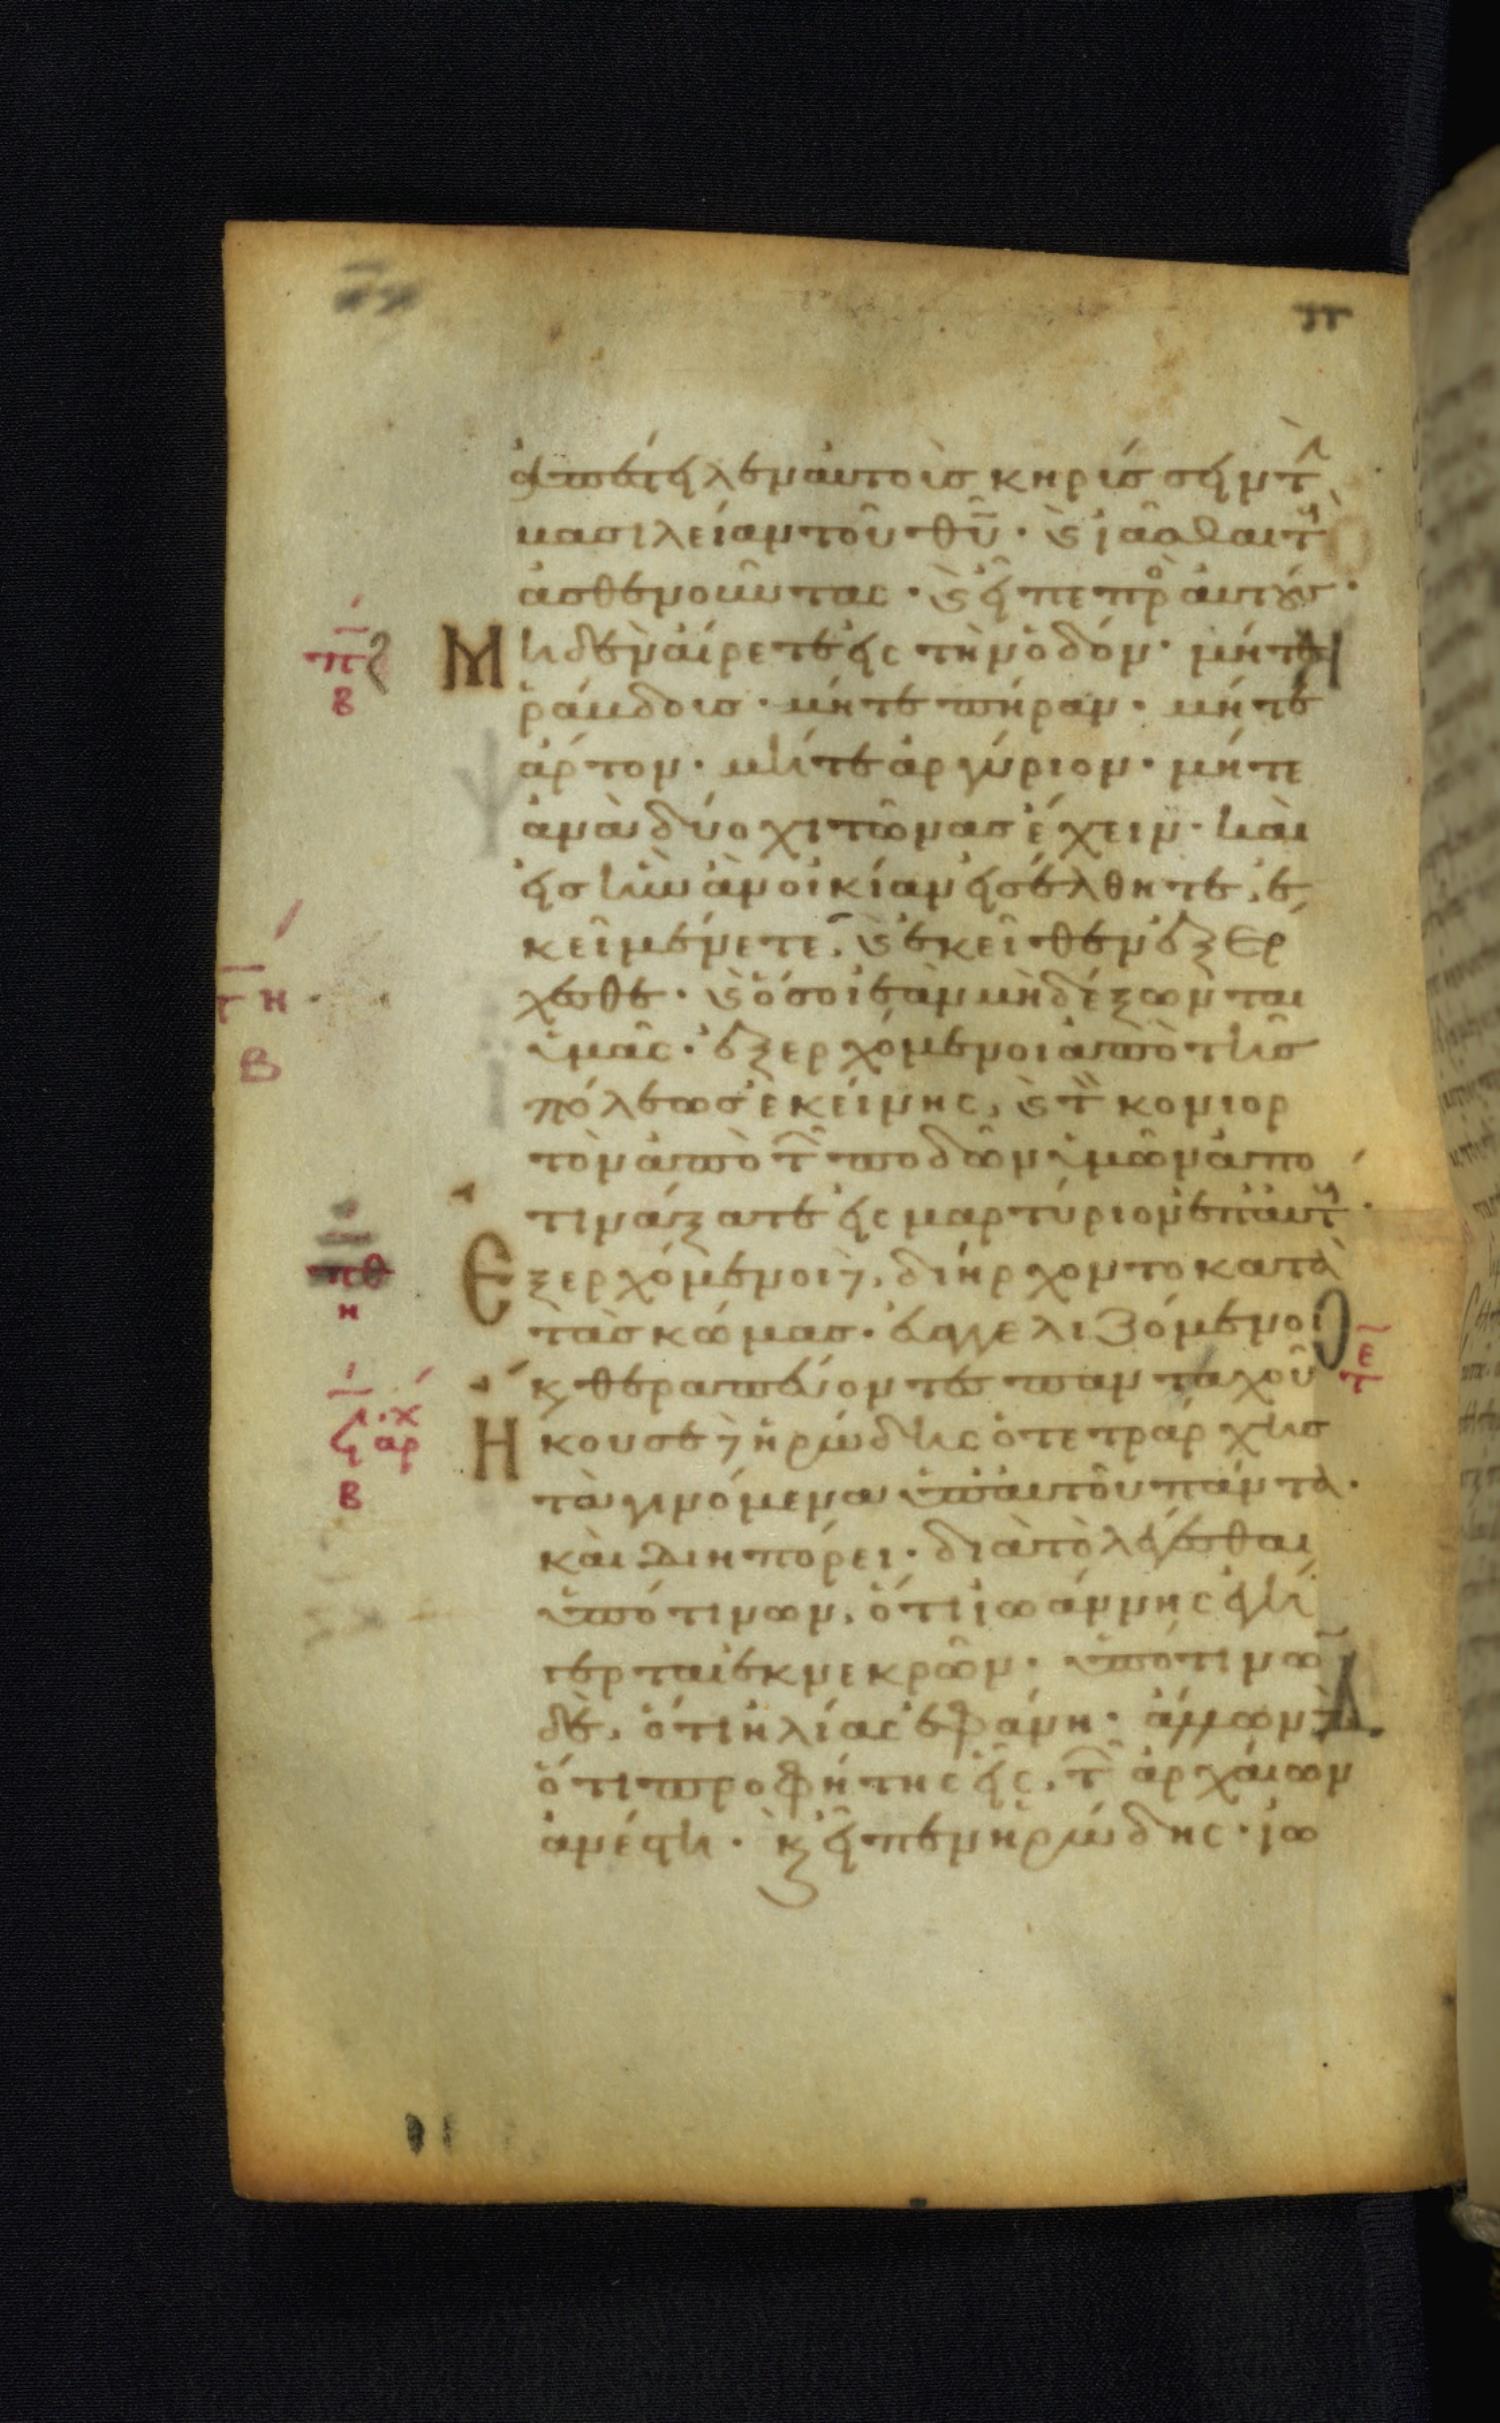 ἀπέστειλεν αὐτοὺσ κηρύσσειν τὴν
βασιλείαν τοῦ θυ̅· καὶ ἰᾶσθαι τοὺς
ἀσθενοῦντας· καὶ εἶπε πρὸς αὐτούς·
Μηδὲν αἴρετε εἰς τὴν ὁδόν· μήτε
ῥάβδουσ· μήτε πήραν· μήτε
ἄρτον· μήτε ἀργύριον· μήτε
ἀνὰ δύο χιτῶνασ ἔχειν· καὶ
εἰσ ἣν ἂν οἰκίαν εἰσέλθητε, ἐ
κεῖ μένετε, καὶ ἐκεῖθεν ἐξέρ
χεσθε· καὶ ὅσοι ἐὰν μὴ δέξωνται
ὑμᾶς· ἐξερχόμενοι ἀπὸ τῆσ
πόλεωσ ἐκείνης, καὶ τὸν κονιορ
τὸν ἀπὸ τῶν ποδῶν ὑμῶν ἀπο
τινάξατε εἰς μαρτύριον ἐπ αὐτούς·
Ἐξερχόμενοι δὲ, διήρχοντο κατὰ
τὰσ κώμασ· εὐαγγελιζόμενοι
καὶ θεραπεύοντεσ πανταχοῦ
Ἤκουσε δὲ ἡρώδης ὁ τετράρχησ
τὰ γινόμενα ὑπ αὐτοῦ πάντα·
καὶ διηπόρει· διὰ τὸ λέγεσθαι
ὑπό τινων, ὅτι ἰωάννης ἐγή
γερται ἐκ νεκρῶν· ὑπό τινων
δὲ, ὅτι ἠλίας ἐφάνη· ἄλλων δὲ
ὅτι προφήτης εἷς, τῶν ἀρχαίων
ἀνέστη· καὶ εἶπεν ἡρώδης· ἰω